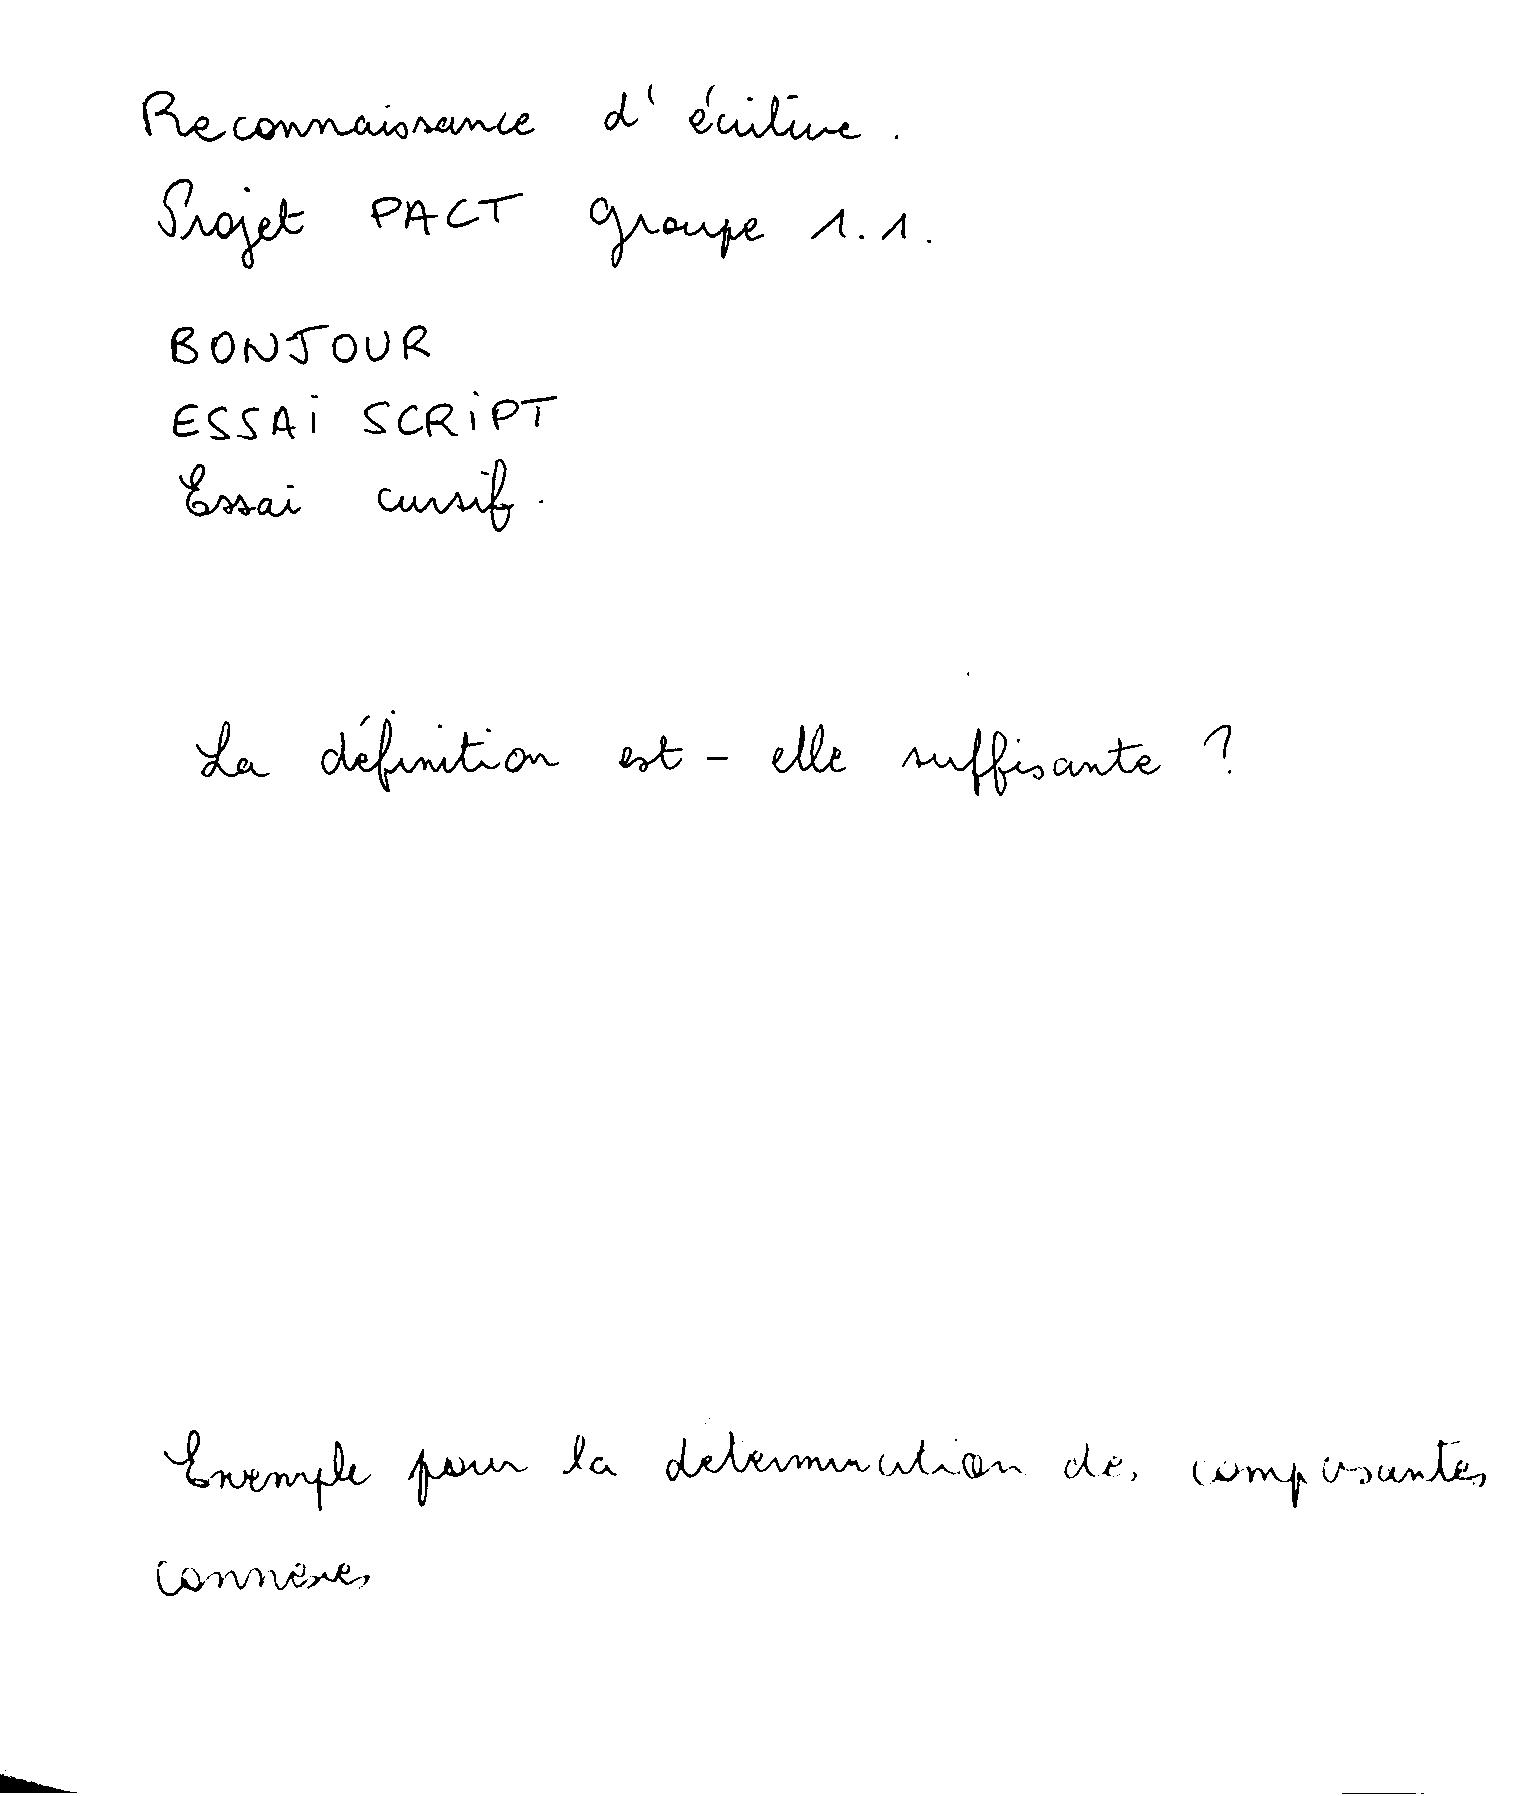 Reconnaissance d'écriture.
Projet PACT groupe 1.1.
BONJOUR
ESSAi SCRiPT
Essai cursif.
La définition est-elle suffisante ?
Exemple pour la determination des composantes
connexes